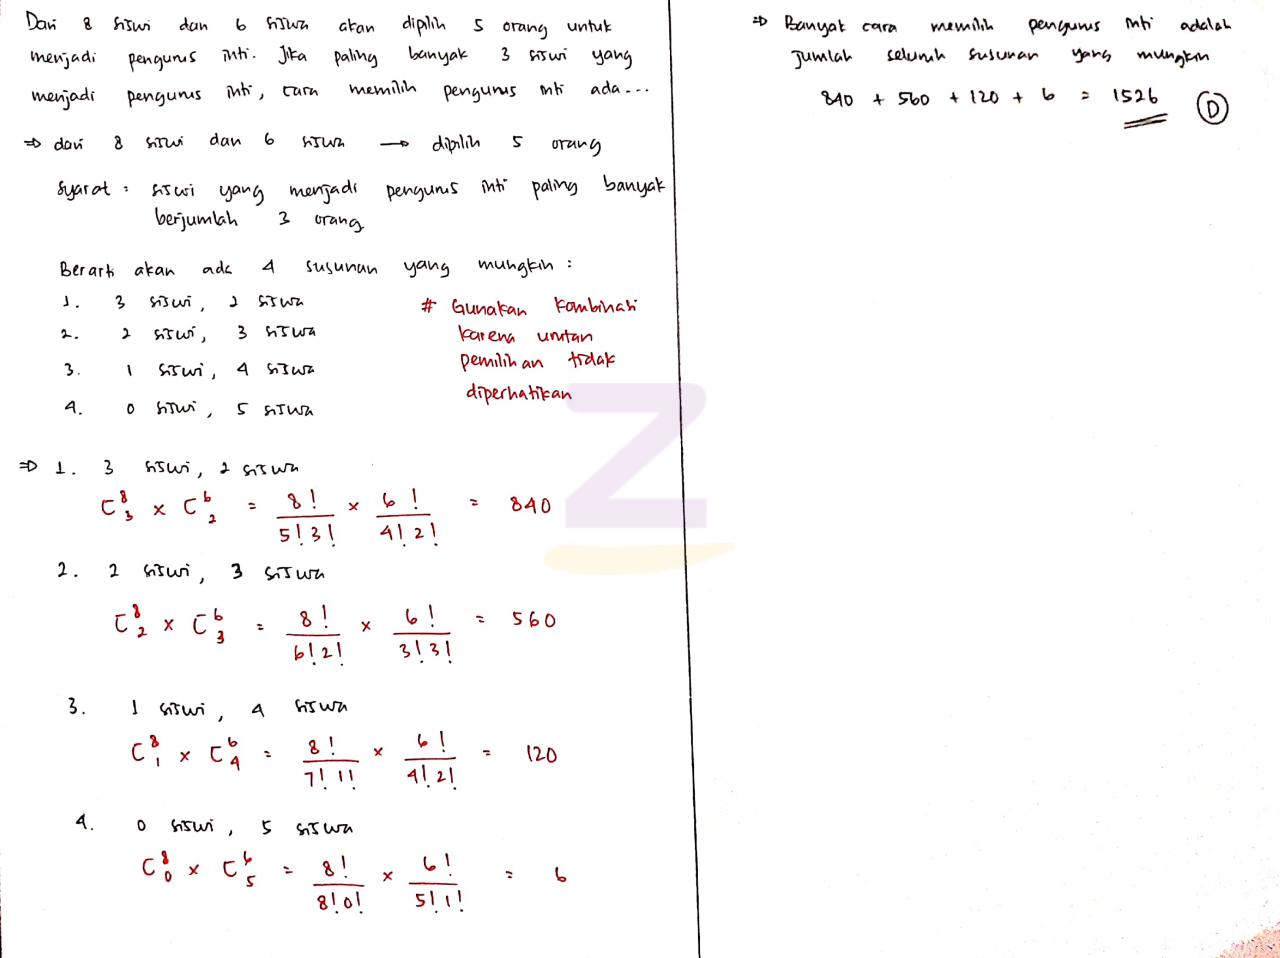 Dari 8 siswi dan 6 siswa akan dipilih 5 orang untuk
menjadi pengurus inti. Jika paling banyak 3 siswi yang
menjadi pengurus inti, cara memilih pengurus inti ada...
⇒ dari 8 siswi dan 6 siswa → dipilih 5 orang
Syarat : siswi yang menjadi pengurus inti paling banyak
berjumlah 3 orang
Berarti akan ada 4 susunan yang mungkin :
1. 3 siswi, 2 siswa
2. 2 siswi, 3 siswa
3. 1 siswi, 4 siswa
4. 0 siswi, 5 siswa
# Gunakan kombinasi
karena urutan
pemilihan tidak
diperhatikan
⇒ 1. 3 siswi, 2 siswa
C⁸₃ × C⁶₂ = 8!/5!3! × 6!/4!2! = 840
2. 2 siswi, 3 siswa
C⁸₂ × C⁶₃ = 8!/6!2! × 6!/3!3! = 560
3. 1 siswi, 4 siswa
C⁸₁ × C⁶₄ = 8!/7!1! × 6!/4!2! = 120
4. 0 siswi, 5 siswa
C⁸₀ × C⁶₅ = 8!/8!0! × 6!/5!1! = 6
⇒ Banyak cara memilih pengurus inti adalah
jumlah seluruh susunan yang mungkin
840 + 560 + 120 + 6 = 1526 D
Z